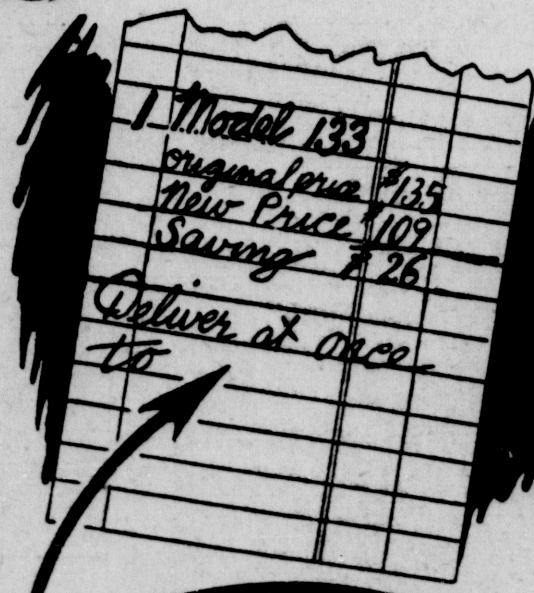 1 Model 133
original price $135
New Price $109
Saving $26
Deliver at once
to